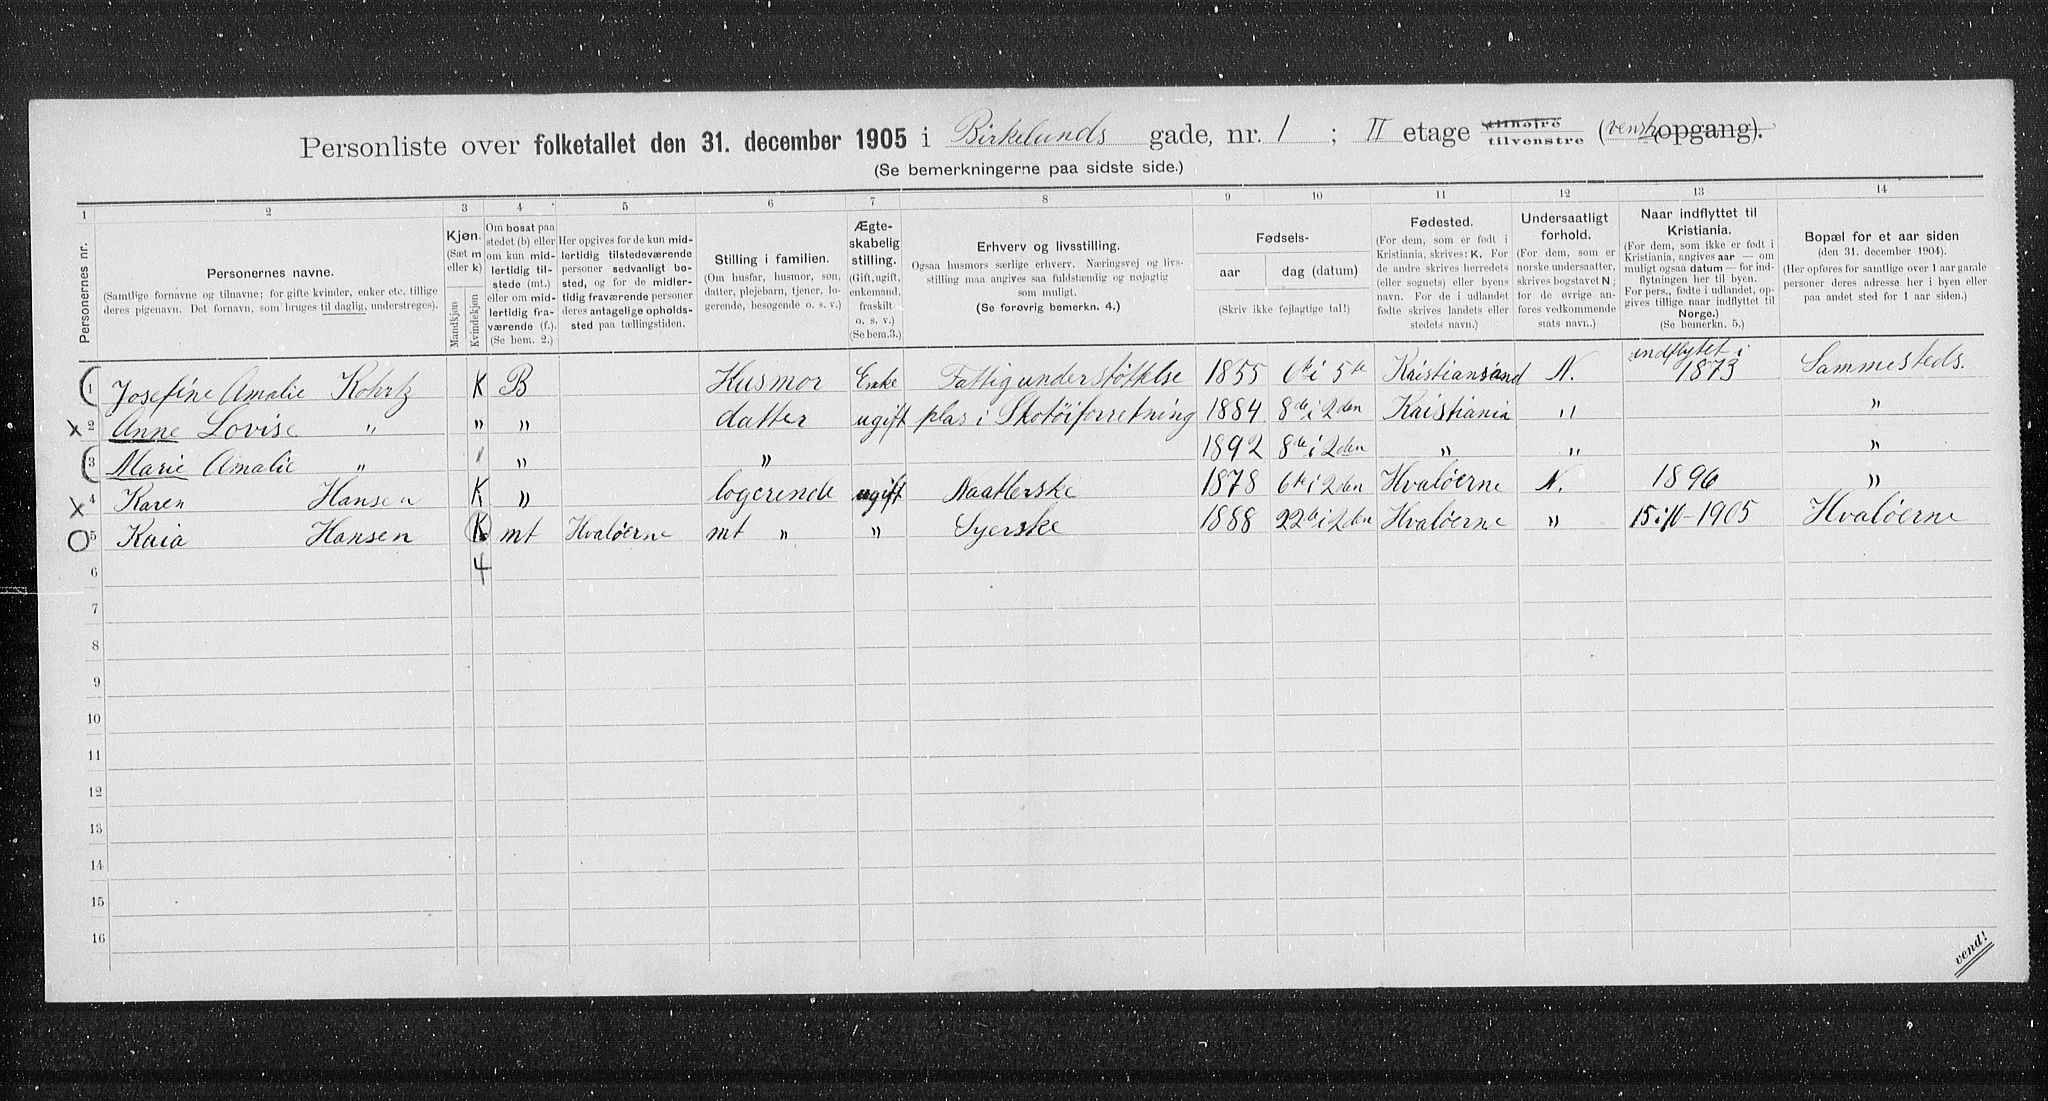 Personliste over folketallet den 31. december 1905 i Birkelunds gade, nr. 1 ; II etage tilhøjre tilvenstre (venstr opgang).
(Se bemerkningerne paa sidste side.)
1 2 3 4 5 6 7 8 9 10 11 12 13 14
Personernes nr.
Personernes navne.
(Samtlige fornavne og tilnavne; for gifte kvinder, enker etc. tillige deres pigenavn. Det fornavn, som bruges til daglig, understreges).
Kjøn.
(Sæt m eller k)
Mandkjøn
Kvindekjøn
Om bosat paa stedet (b) eller om kun midlertidig tilstede (mt.) eller om midlertidig fraværende (f.). (Se bem. 2.)
Her opgives for de kun midlertidig tilstedeværende personer sedvanligt bosted, og for de midlertidig fraværende personer deres antagelige opholdssted paa tællingstiden.
Stilling i familien.
(Om husfar, husmor, søn, datter, plejebarn, tjener, logerende, besøgende o. s. v.)
Ægteskabelig stilling.
(Gift, ugift, enkemand, fraskilt o. s. v.) (Se bem.3.)
Erhverv og livsstilling.
Ogsaa husmors særlige erhverv. Næringsvej og livsstilling maa angives saa fuldstændig og nøjagtig som muligt.
(Se forøvrig bemerkn. 4.)
Fødsels-
aar
dag (datum)
(Skriv ikke fejlagtige tal!)
Fødested.
(For dem, som er født i Kristiania, skrives: K. For de andre skrives herredets (eller sognets) eller byens navn. For de i udlandet fødte skrives landets eller stedets navn.)
Undersaatligt forhold.
(For dem, som er norske undersaatter, skrives bogstavet N; for de øvrige anføres vedkommende stats navn.)
Naar indflyttet til Kristiania.
(For dem, som ikke er født i Kristiania, angives aar — om muligt ogsaa datum — for indflytningen her til byen. For pers., fødte i udlandet, opgives tillige naar indflyttet til Norge.)
(Se bemerkn. 5.)
Bopæl for et aar siden
(den 31. december 1904).
(Her opføres for samtlige over 1 aar gamle personer deres adresse her i byen eller paa andet sted for 1 aar siden.)
1 Josefine Amalie Kohrtz K B Husmor Enke Fattigunderstøttelse 1855 6te i 5te Kristiansand N. indflytet i 1873 Sammesteds.
2 Anne Lovise " " " datter ugift plas i Skotöiforretning 1884 8de i 2den Kristiania " "
3 Marie Amalie " " " " 1892 8te i 2den " " "
4 Karen Hansen K " logerende ugift Naatlerske 1878 6te i 2den Hvaløerne N. 1896 "
5 Kaia Hansen K mt Hvaløerne mt " " Syerske 1888 22de i 2den Hvaløerne " 15 i 10-1905 Hvaløerne
6 4
7
8
9
10
11
12
13
14
15
16
vend!